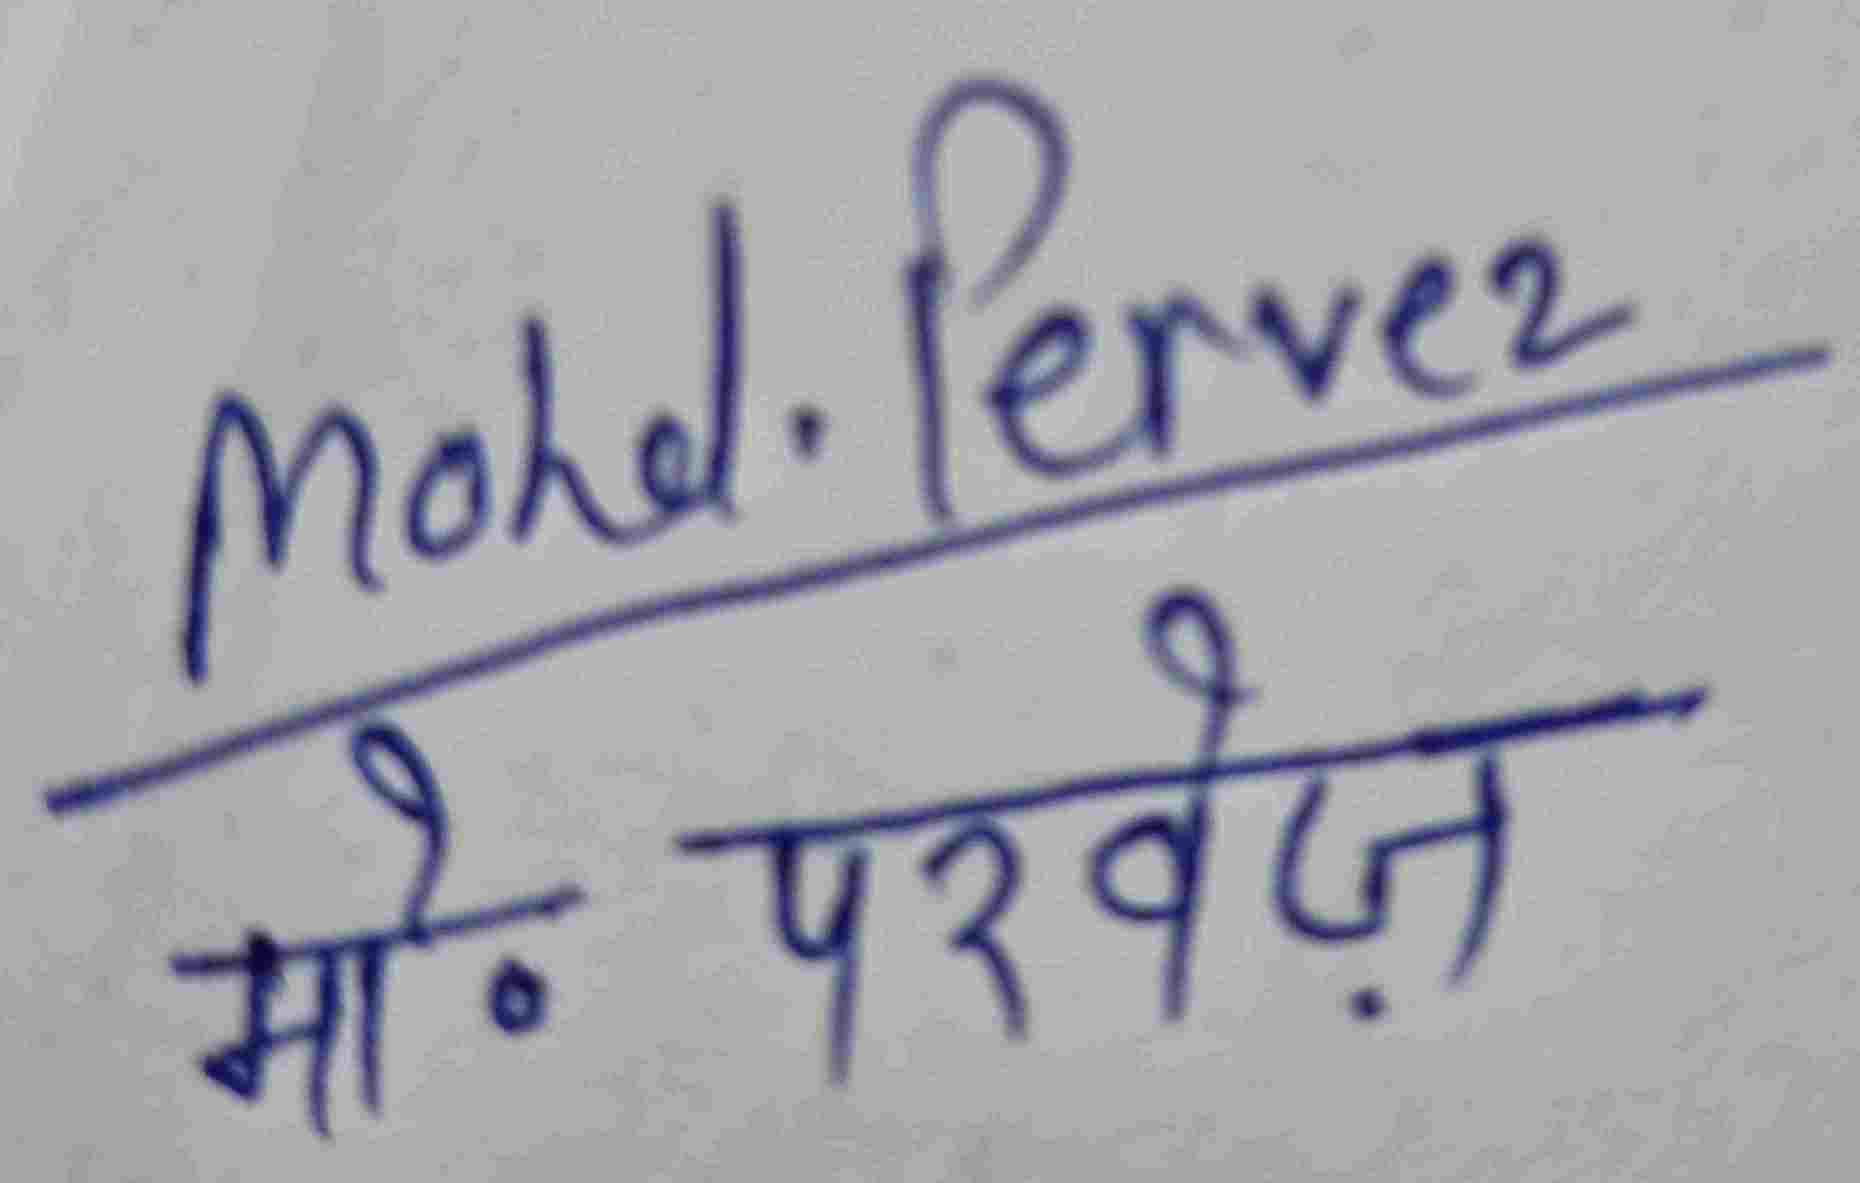 Mohd. Pervez
मो० परवेज़